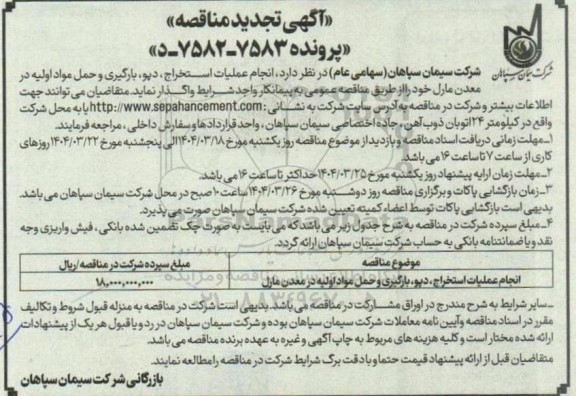 «آگهی تجدید مناقصه»
«پرونده ۷۵۸۳-۷۵۸۲-د»
شرکت سیمان سپاهان
شرکت سیمان سپاهان (سهامی عام) در نظر دارد، انجام عملیات استخراج، دپو، بارگیری و حمل مواد اولیه در
معدن مارل خود را از طریق مناقصه عمومی به پیمانکار واجد شرایط واگذار نماید. متقاضیان می توانند جهت
اطلاعات بیشتر و شرکت در مناقصه به آدرس سایت شرکت به نشانی: http://www.sepahancement.com یا به محل شرکت
واقع در کیلومتر ۲۴ اتوبان ذوب آهن، جاده اختصاصی سیمان سپاهان، واحد قراردادها و سفارش داخلی، مراجعه فرمایند.
۱- مهلت زمانی دریافت اسناد مناقصه و بازدید از موضوع مناقصه روز یکشنبه مورخ ۱۴۰۴/۰۳/۱۸ الی پنجشنبه مورخ ۱۴۰۴/۰۳/۲۲ روزهای
کاری از ساعت ۷ تا ساعت ۱۶ می باشد.
۲- مهلت زمان ارایه پیشنهاد روز یکشنبه مورخ ۱۴۰۴/۰۳/۲۵ حداکثر تا ساعت ۱۶ می باشد.
۳- زمان بازگشایی پاکات و برگزاری مناقصه روز دوشنبه مورخ ۱۴۰۴/۰۳/۲۶ ساعت ۱۰ صبح در محل شرکت سیمان سپاهان می باشد.
بدیهی است بازگشایی پاکات توسط اعضاء کمیته تعیین شده شرکت سیمان سپاهان صورت می پذیرد.
۴- مبلغ سپرده شرکت در مناقصه به شرح جدول زیر می باشد که می بایست به صورت چک تضمین شده بانکی، فیش واریزی وجه
نقد و یا ضمانتنامه بانکی به حساب شرکت سیمان سپاهان ارائه گردد.
موضوع مناقصه مبلغ سپرده شرکت در مناقصه/ریال
انجام عملیات استخراج، دپو، بارگیری و حمل مواد اولیه در معدن مارل ۱۸,۰۰۰,۰۰۰,۰۰۰
- سایر شرایط به شرح مندرج در اوراق مشارکت در مناقصه می باشد. بدیهی است شرکت در مناقصه به منزله قبول شروط و تکالیف
مقرر در اسناد مناقصه و آیین نامه معاملات شرکت سیمان سپاهان بوده و شرکت سیمان سپاهان در رد و یا قبول هر یک از پیشنهادات
ارائه شده مختار است و کلیه هزینه های مربوط به چاپ آگهی و غیره به عهده برنده مناقصه می باشد.
متقاضیان قبل از ارائه پیشنهاد قیمت حتما و با دقت برگ شرایط شرکت در مناقصه را مطالعه نمایند.
بازرگانی شرکت سیمان سپاهان